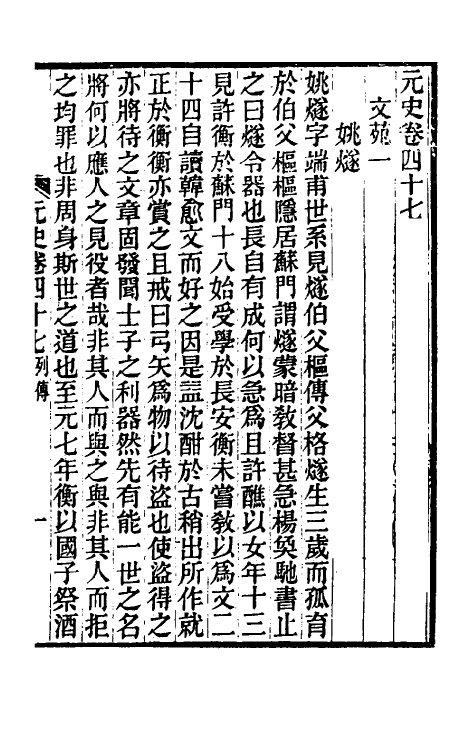 元史卷四十七
文苑一
姚燧
姚燧字端甫世系見燧伯父樞傳父格燧生三歲而孤育
於伯父樞樞隱居蘇門謂燧蒙暗敎督甚急楊奐馳書止
之曰燧令器也長自有成何以急爲且許醮以女年十三
見許衡於蘇門十八始受學於長安衡未嘗敎以爲文二
十四自讀韓愈文而好之因是益沈酣於古稍出所作就
正於衡衡亦賞之且戒曰弓矢爲物以待盜也使盜得之
亦將待之文章固發聞士子之利器然先有能一世之名
將何以應人之見役者哉非其人而與之與非其人而拒
之均罪也非周身斯世之道也至元七年衡以國子祭酒
元史卷四十七列傳 一